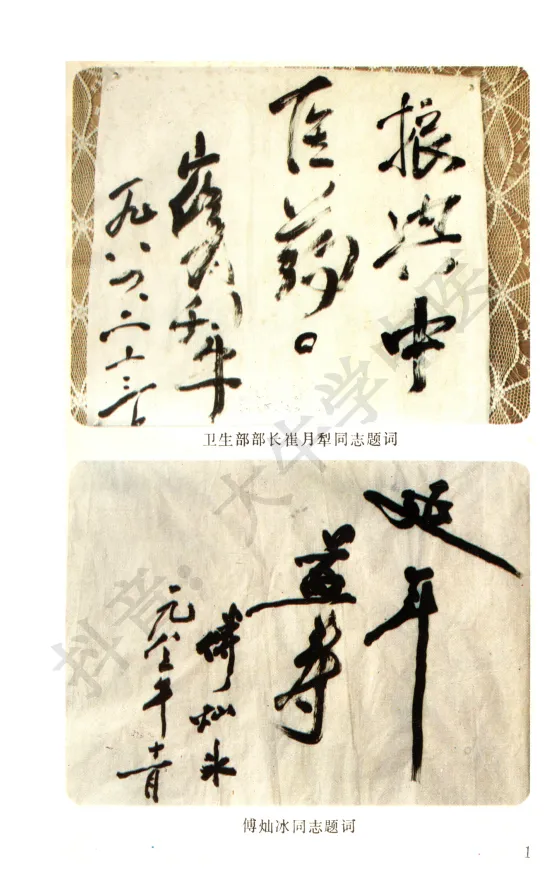 振兴中
医药。
崔月犁
一九八六、二十三日
卫生部部长崔月犁同志题词
延年
益寿
傅灿冰
十一月
傅灿冰同志题词
1
抖音：大牛学中医